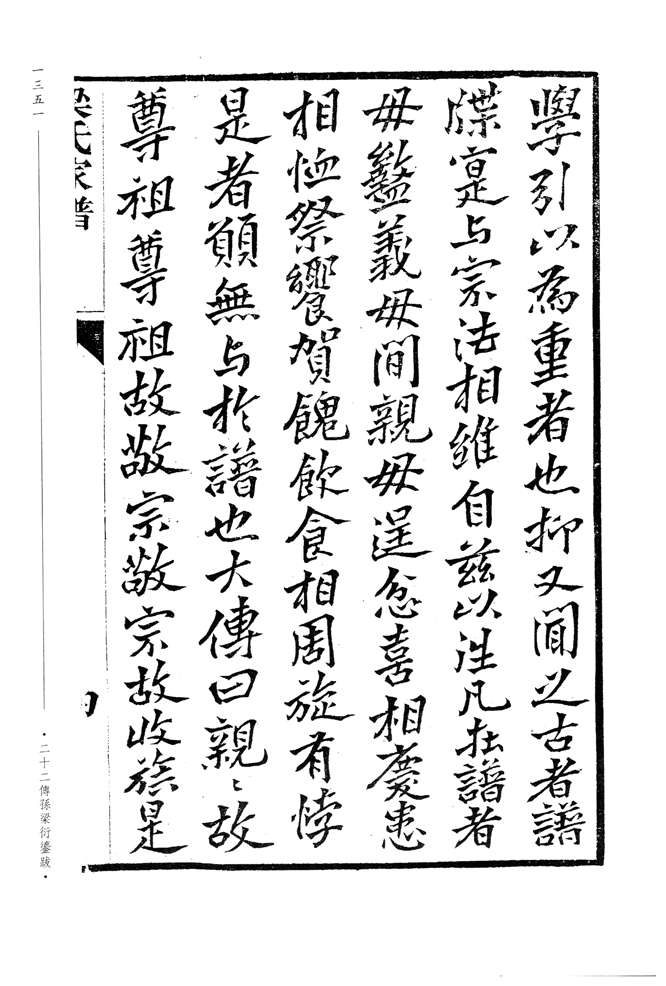 學引以為重者也抑又聞之古者譜
牒寔与宗法相維自兹以往凡在譜者
毋蠿義毋間親毋逞忿喜相慶患
相恤祭饗賀餽飲食相周旋有悖
是者願無与於譜也大傳曰親〻故
尊祖尊祖故敬宗敬宗故收族是
梁氏家譜
一三五一
·二十二傳孫梁衍鎏跋·